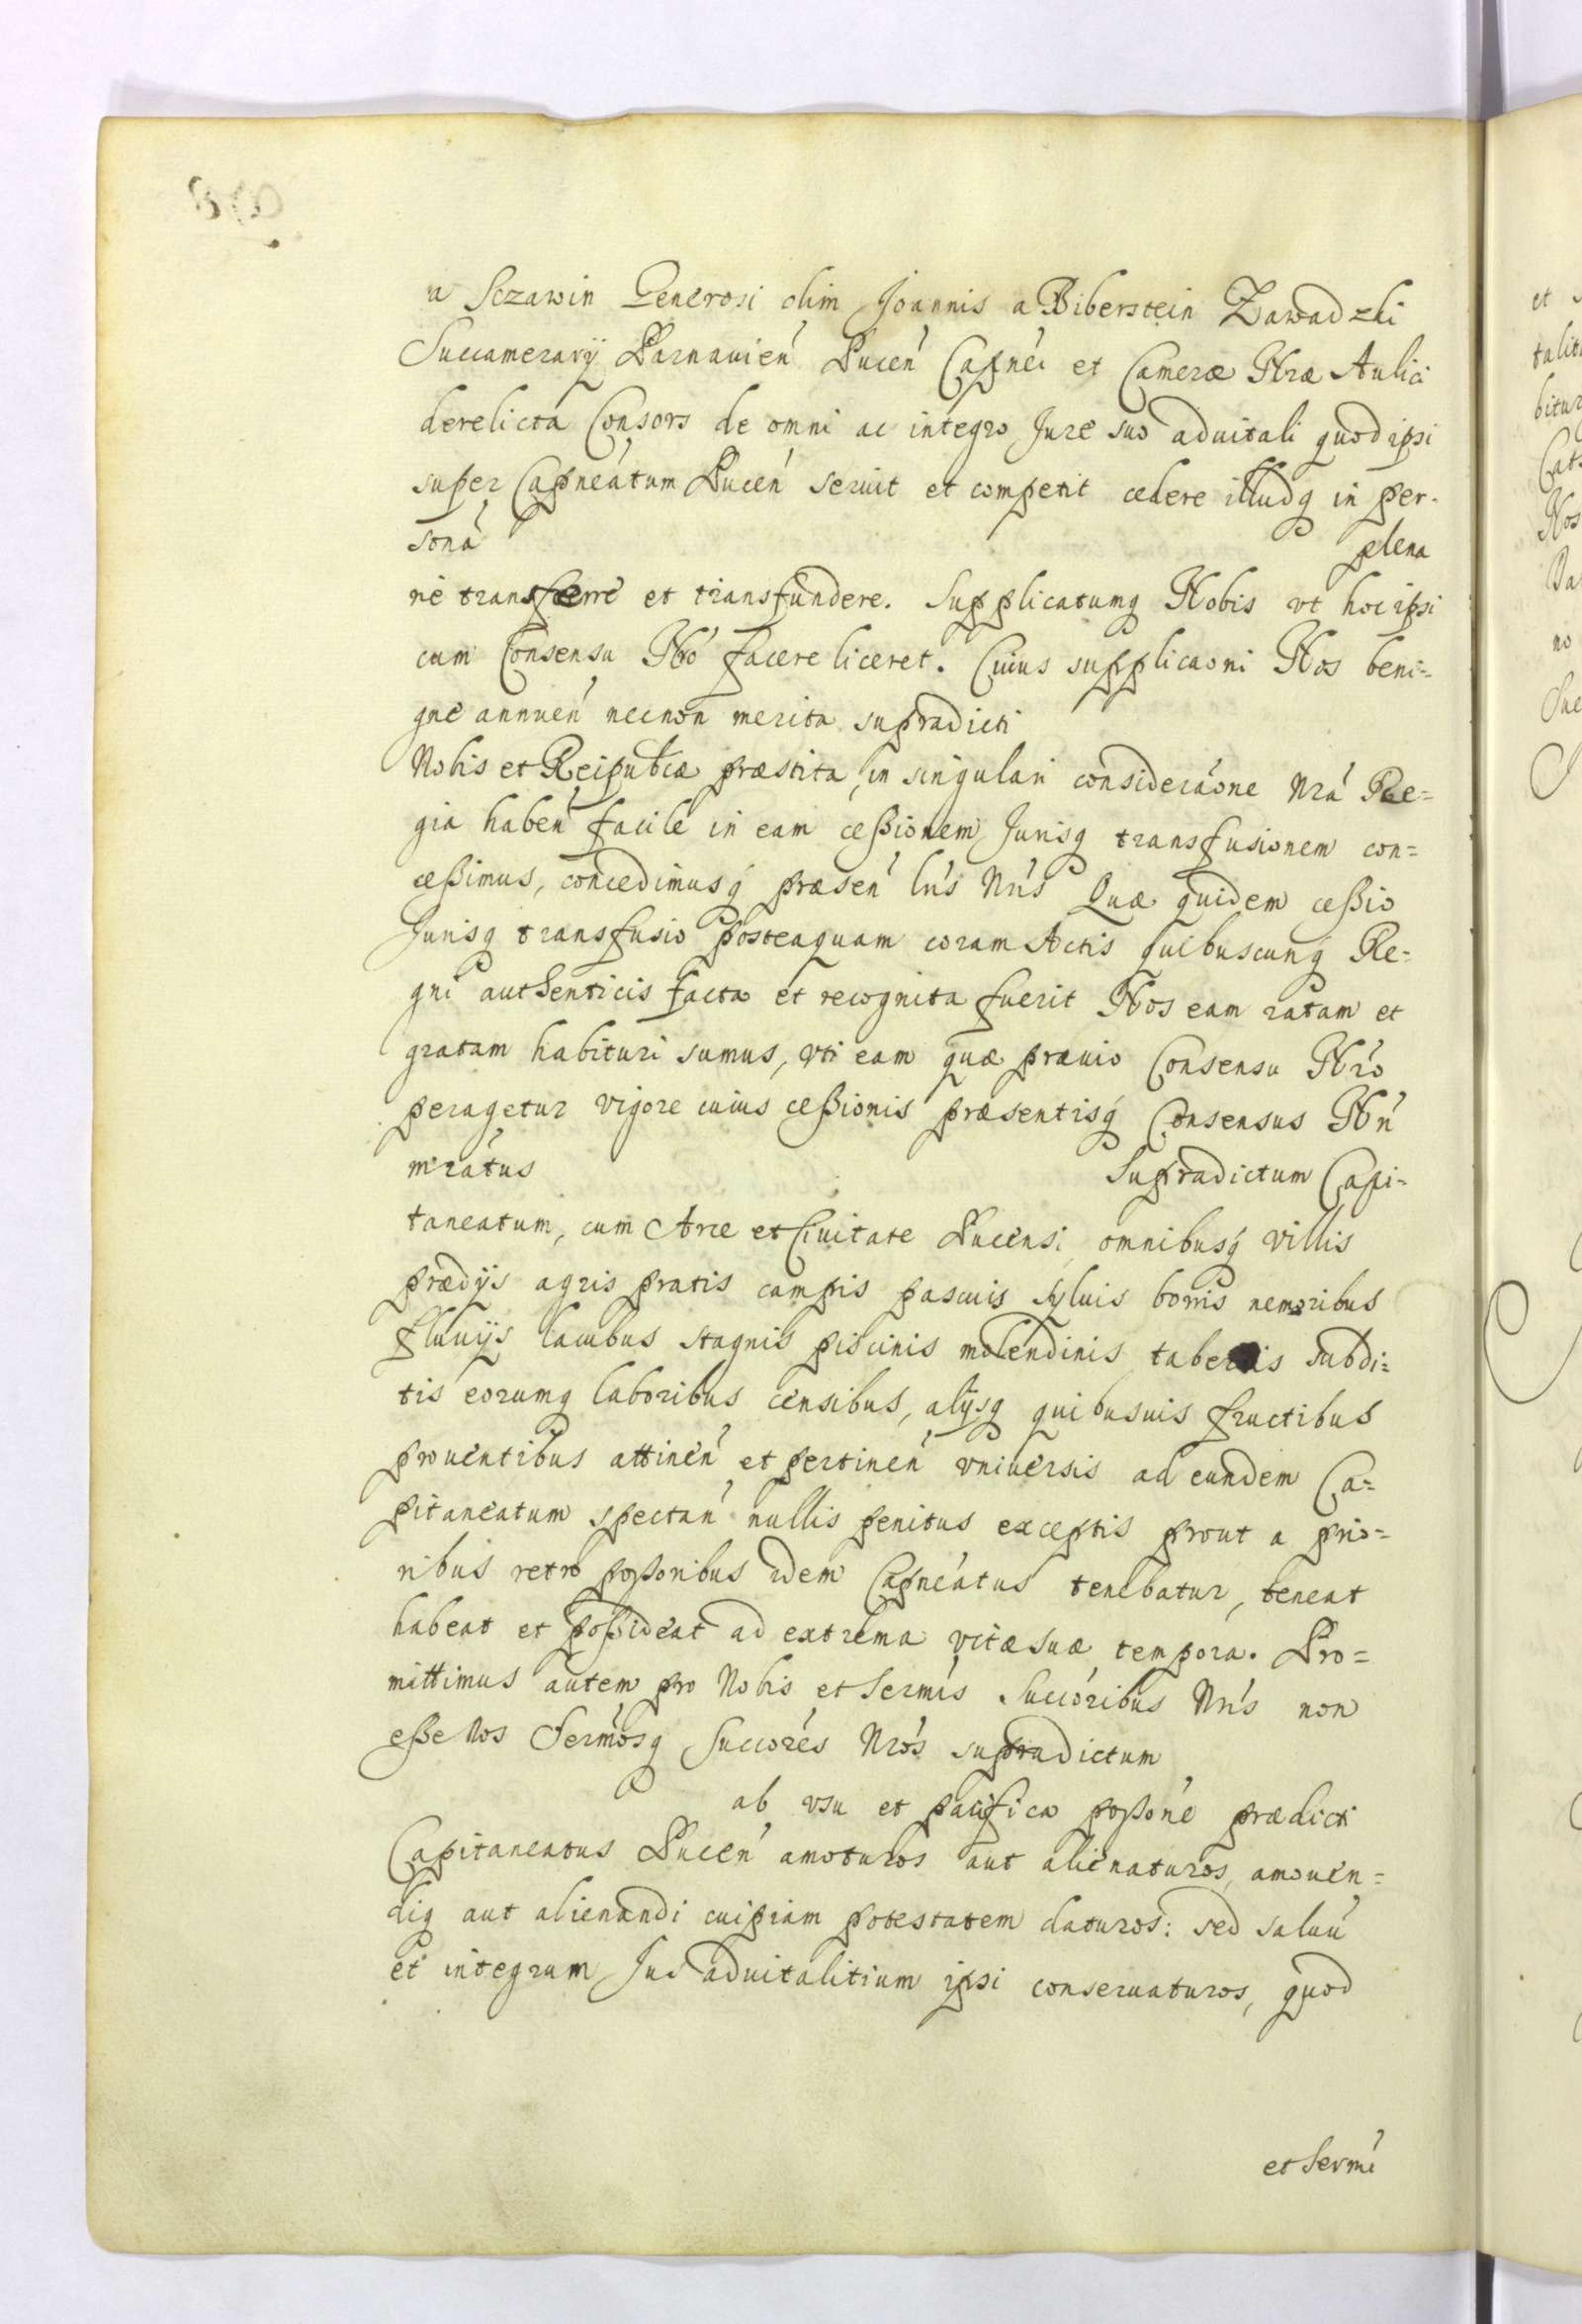 a Sczawin Generosi olim Joannis a Biberstein Zawadzki
Succamerarÿ Parnauień Puceń Capnéi et Cameræ Nræ Aulici
derelicta Consors de omni ac integro Jure suo aduitali quod ipsi
super Capneátum Puceń seruit et competit cedere illudq in per-
soná
plena
rié transferre et transfundere. Supplicatumq Nobis vt hoc ipsi
cum Consensu Nró facere liceret. Cuius supplicaoni Nos beni=
gne annueń necnon merita supradicti
Nobis et Reipublcæ præstita, in singulari consideraóne Nrá Re=
gia habeń facile in eam cessionem Jurisq transfusionem con=
cessimus, concedimusq præseń lrís Nrís Quæ quidem cessio
Jurisq transfusio posteaquam coram Actis quibuscunq Re=
gni authenticis facta et recognita fuerit Nos eam ratam et
gratam habituri sumus, vti eam quæ præuio Consensu Nró
peragetur vigore cuius cessionis præsentisq Consensus Nrí
mratús
supradictum Capi=
taneatum, cum Arce et Ciuitate Pucensi omnibusq villis
prædÿs agris pratis campis pascuis syluis borris nemoribus
fluuÿs lacubus stagnis piscinis molendinis tabernis subdi=
tis eorumq laboribus censibus, alÿsq quibusuis fructibus
prouentibus attineń et pertineń vniuersis ad eundem Ca=
pitaneatum spectań nullis penitus exceptis prout a prio=
ribus retro possoribus idem Capneátus tenebatur, teneat
habeat et possideat ad extrema vitæ suæ tempora. Pro=
mittimus autem pro Nobis et Sermís Succóribus Nrís non
esse Nos Sermósq Succóres Nrós supradictum
ab vsu et pacifica possoné prædicti
Capitaneatus Puceń amoturos aut alienaturos, amouen=
diq aut alienandi cuipiam potestatem daturos: sed saluú
et integrum Jus aduitalitium ipsi conseruaturos, quod
et Sermí